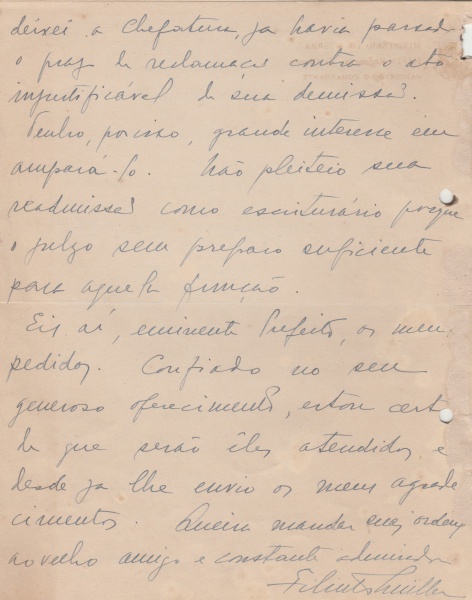 deixei a Chefatura, ja havia passado
o prazo de reclamação contra o ato
injustificável de sua demissão.
Tenho, por isso, grande interesse em
ampará-lo. Não pleiteio sua
readmissão como escriturário porque
o julgo sem preparo suficiente
para aquela função.
Eis aí, eminente Prefeito, os meus
pedidos. Confiado no seu
generoso oferecimento, estou certo
de que serão êles atendidos e
desde ja lhe envio os meus agrade
cimentos. Queira mandar suas ordens
ao velho amigo e constante admirador
Filinto Müller